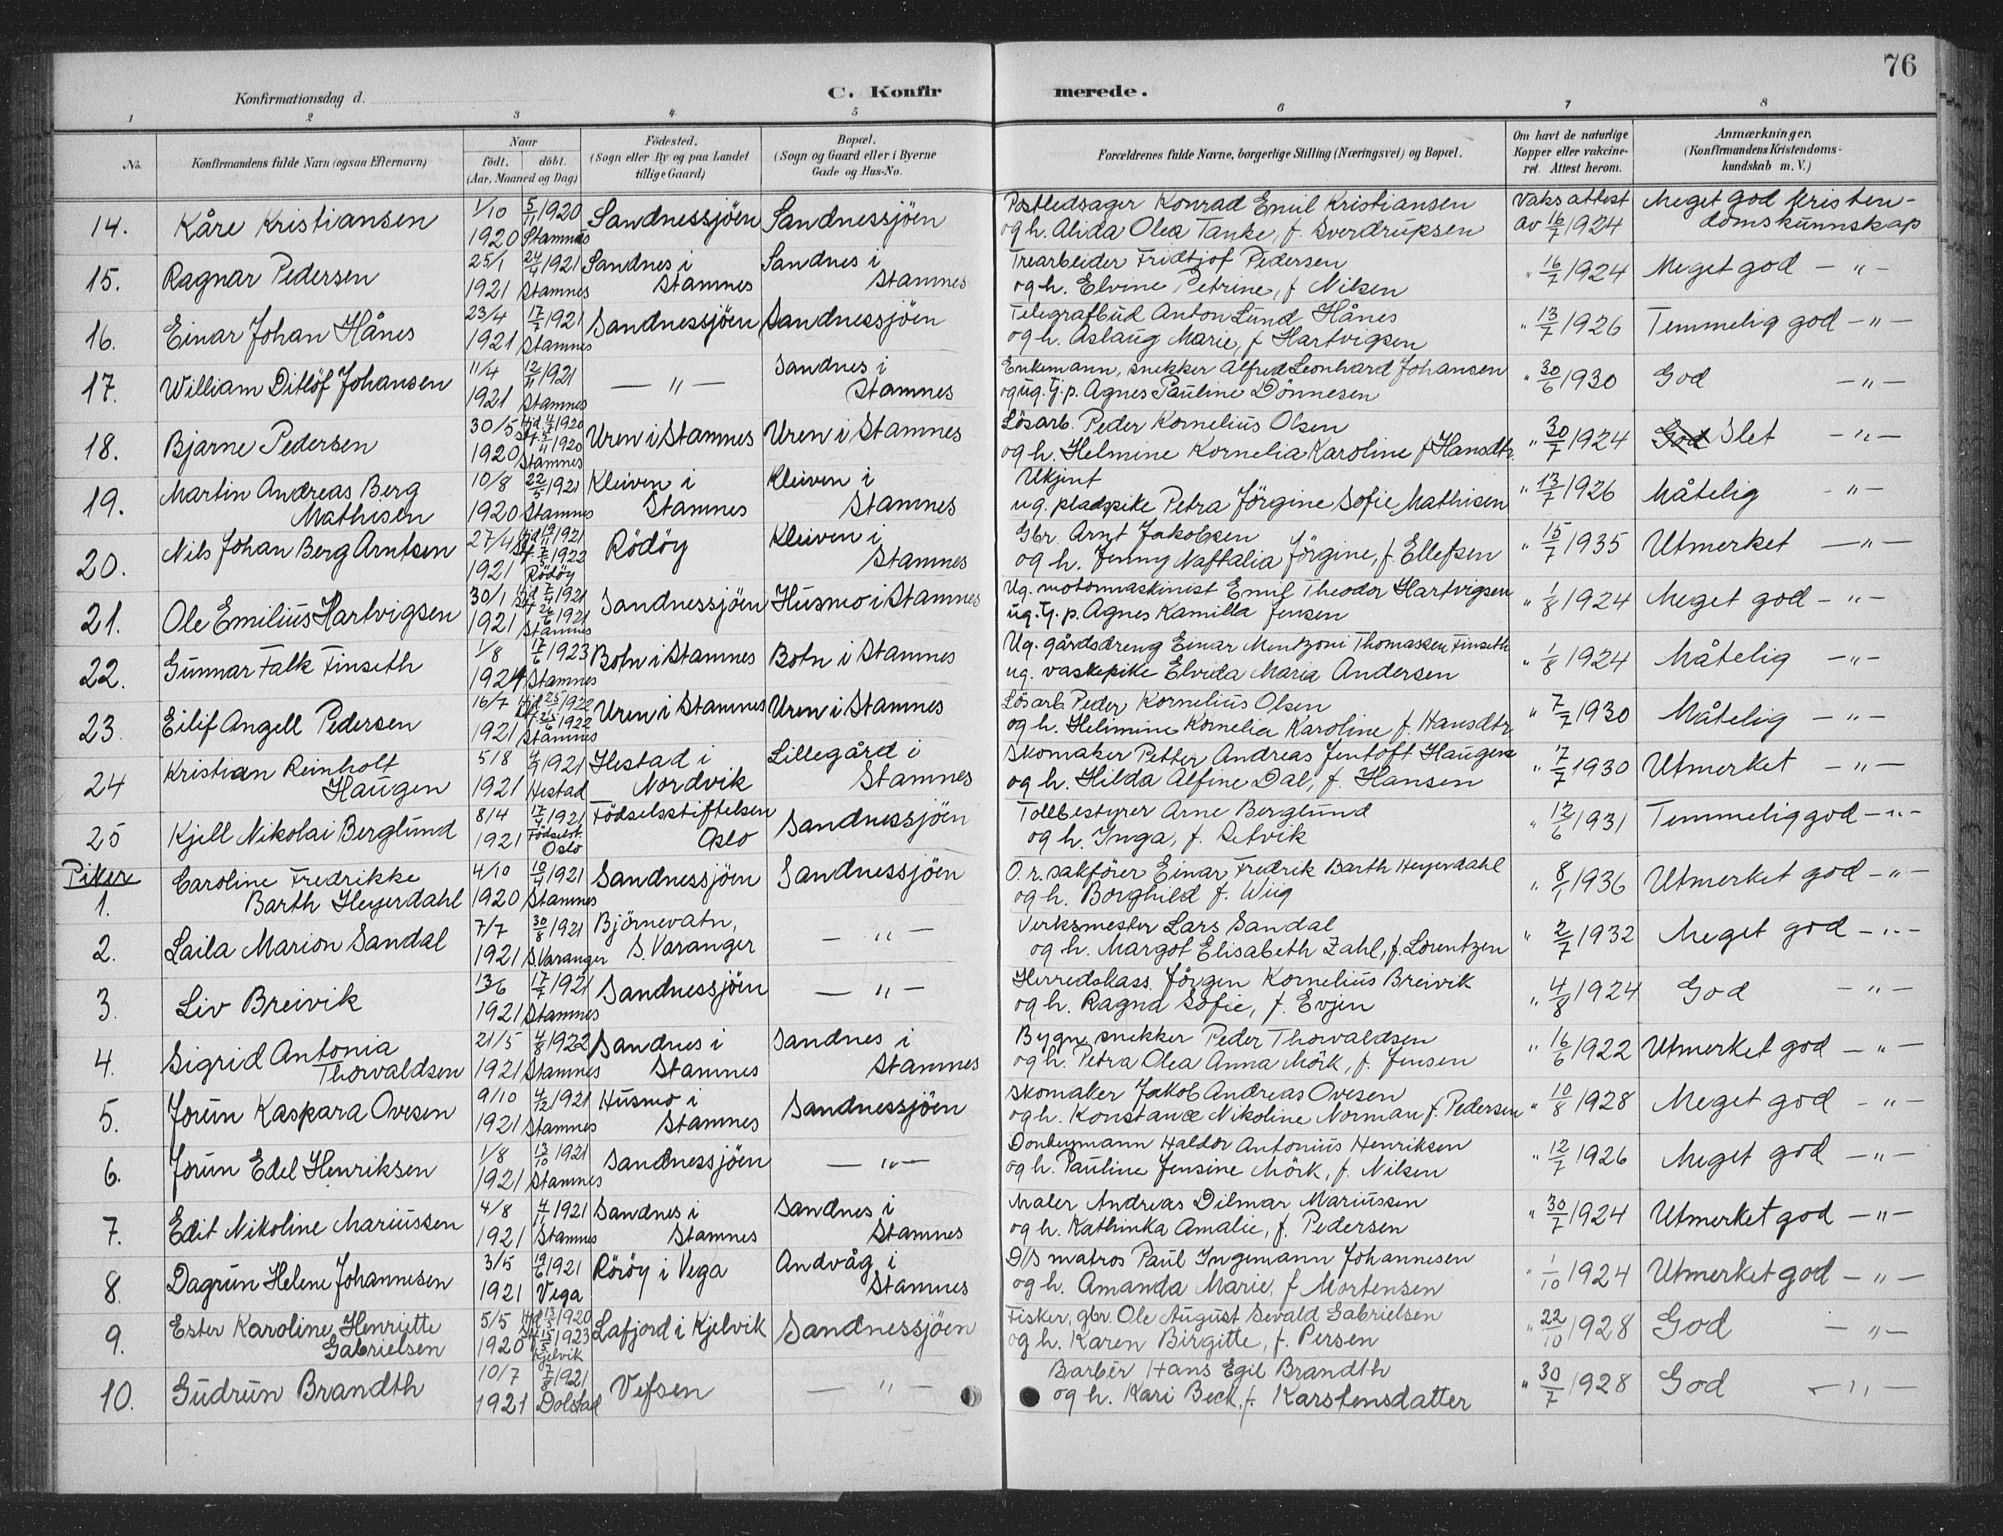 76
Konfirmationsdag d.
C. Konfirmerede.
1 2 3 4 5 6 7 8
No. Konfirmandens fulde Navn (ogsaa Efternavn) Naar født. døbt. (Aar, Maaned og Dag) Födested. (Sogn eller By og paa Landet tillige Gaard) Bopæl. (Sogn og Gaard eller i Byerne Gade og Hus-No. Forældrenes fulde Navne, borgerlige Stilling (Næringsvei) og Bopæl. Om havt de naturlige Kopper eller vakcineret. Attest herom. Anmærkninger, (Konfirmandens Kristendomskundskab m. V.)
14. Kåre Kristiansen 1/10 1920 5/11 1920 Stamnes Sandnessjöen Sandnessjöen Postledsager Konrad Emil Kristiansen
og h. Alida Olea Tanke, f. Sverdrupsen Vaksattest av 16/7 1924 Meget god kristendomskunnskap
15. Ragnar Pedersen 25/1 1921 24/4 1921 Stamnes Sandnes i Stamnes Sandnes i Stamnes Trearbeider Fridtjof Pedersen
og h. Elvine Petrine, f Nilsen " 16/7 1924 Meget god — " —
16. Einar Johan Hånes 23/4 1921 17/7 1921 Stamnes Sandnessjöen Sandnessjöen Telegrafbud Anton Lund Hånes
og h. Aslaug Marie, f Hartvigsen " 13/7 1926 Temmelig god — " —
17. William Ditlöf Johansen 11/4 1921 12/11 1921 Stamnes — " — Sandnes i Stamnes Enkemann, snekker Alfred Leonhard Johansen
og ug. tj. p. Agnes Pauline Dönnesen " 30/6 1930 God — " —
18. Bjarne Pedersen 30/5 1920 Hjd. 1920 St. 1920 Stamnes Uren i Stamnes Uren i Stamnes Lösarb. Peder Kornelius Olsen
og h. Helmine Kornelia Karoline f Hansdtr. " 30/7 1924 God Slet — " —
19. Martin Andreas Berg Mathisen 10/8 1920 22/5 1921 Stamnes Kleiven i Stamnes Kleiven i Stamnes Ukjent
ug. pladspike Petra Jörgine Sofie Mathisen " 13/7 1926 Måtelig — " —
20. Nils Johan Berg Arntsen 27/4 1921 Hjd 1921 St. 1922 Rödöy Rödöy Kleiven i Stamnes Gbr. Arnt Jakobsen
og h. Jenny Naftalia Jörgine, f. Ellefsen " 15/7 1935 Utmerket — " —
21. Ole Emilius Hartvigsen 30/1 1921 Hjd 1921 St. 26/6 1921 Stamnes Sandnessjöen Husmo i Stamnes Ug. motormaskinist Emil Theodor Hartvigsen
ug. tj. p. Agnes Kamilla Jensen " 1/8 1924 Meget god — " —
22. Gunnar Falk Finseth 1/8 1921 17/6 1923 Stamnes Botn i Stamnes Botn i Stamnes Ug. gårdsdreng Einar Mentzoni Thomassen Finseth
ug. vaskepike Elvida Maria Andersen " 1/8 1924 Måtelig — " —
23. Eilif Angell Pedersen 16/7 1921 Hjd 1922 St. 25/6 1922 Stamnes Uren i Stamnes Uren i Stamnes Lösarb Peder Kornelius Olsen
og h. Helimine Kornelia Karoline f. Hansdtr " 7/7 1930 Måtelig — " —
24 Kristian Reinholt Haugen 5/8 1921 4/9 1921 Hestad Hestad i Nordvik Lillegård i Stamnes Skomaker Petter Andreas Jentoft Haugen
og h. Hilda Alfine Dal, f. Hansen " 7/7 1930 Utmerket — " —
25 Kjell Nikolai Berglund 8/4 1921 17/4 1921 Födselst. Oslo Födselsstiftelsen Oslo Sandnessjöen Tollbestyrer Arne Berglund
og h. Inga, f. Retvik " 12/6 1931 Temmelig god — " —
Piker
1. Caroline Fredrikke Barth Heyerdahl 4/10 1920 10/4 1921 Stamnes Sandnessjöen Sandnessjöen O. r. sakförer Einar Fredrik Barth Heyerdahl
og h. Borghild f. Wiig " 8/1 1936 Utmerket god — " —
2. Laila Marion Sandal 7/7 1921 30/8 1921 S Varanger Björnevatn, S. Varanger — " — Verksmester Lars Sandal
og h. Margot Elisabeth Zahl, f. Lorentzen " 2/7 1932 Meget god — " —
3. Liv Breivik 13/6 1921 17/7 1921 Stamnes Sandnessjöen — " — Herredskass. Jörgen Kornelius Breivik
og h. Ragna Sofie, f. Evjen " 4/8 1924 God — " —
4. Sigrid Antonia Thorvaldsen 21/5 1921 4/8 1922 Stamnes Sandnes i Stamnes Sandnes i Stamnes Bygn snekker Peder Thorvaldsen
og h. Petra Olea Anna Mörk, f. Jensen " 16/6 1922 Utmerket god — " —
5. Jorun Kaspara Ovesen 9/10 1921 4/12 1921 Stamnes Husmo i Stamnes Sandnessjöen Skomaker Jakob Andreas Ovesen
og h. Konstance Nikoline Norman f. Pedersen " 10/8 1928 Meget god — " —
6. Jorun Edel Henriksen 1/8 1921 13/10 1921 Stamnes Sandnessjöen — " — Donkeymann Haldor Antonius Henriksen
og h. Pauline Jensine Mörk, f. Nilsen " 12/7 1926 Meget god — " —
7. Edit Nikoline Mariussen 4/8 1921 1921 Stamnes Sandnes i Stamnes Sandnes i Stamnes Maler Andreas Dilmar Mariussen
og h. Kathinka Amalie, f. Pedersen " 30/7 1924 Utmerket god — " —
8. Dagrun Helene Johannesen 3/5 1921 19/6 1921 Vega Röröy i Vega Andvåg i Stamnes D/S matros Paul Ingemann Johannesen
og h. Amanda Marie, f Mortensen " 1/10 1924 Utmerket god — " —
9. Ester Karoline Henriette Gabrielsen 5/5 1920 Hjd 1920 St. 15/5 1923 Kjelvik Lafjord i Kjelvik Sandnessjöen Fisker, gbr. Ole August Sevald Gabrielsen
og h. Karen Birgitte, f. Persen " 22/10 1928 God — " —
10. Gudrun Brandth 10/7 1921 7/8 1921 Dolstad Vefsen — " — Barbér Hans Egil Brandth
og h. Kari Beck, f. Karstensdatter " 30/7 1928 God — " —